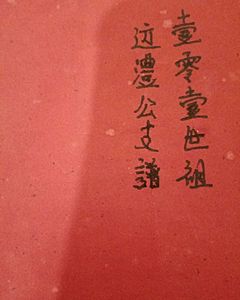 壹零壹世祖
近澧公支譜